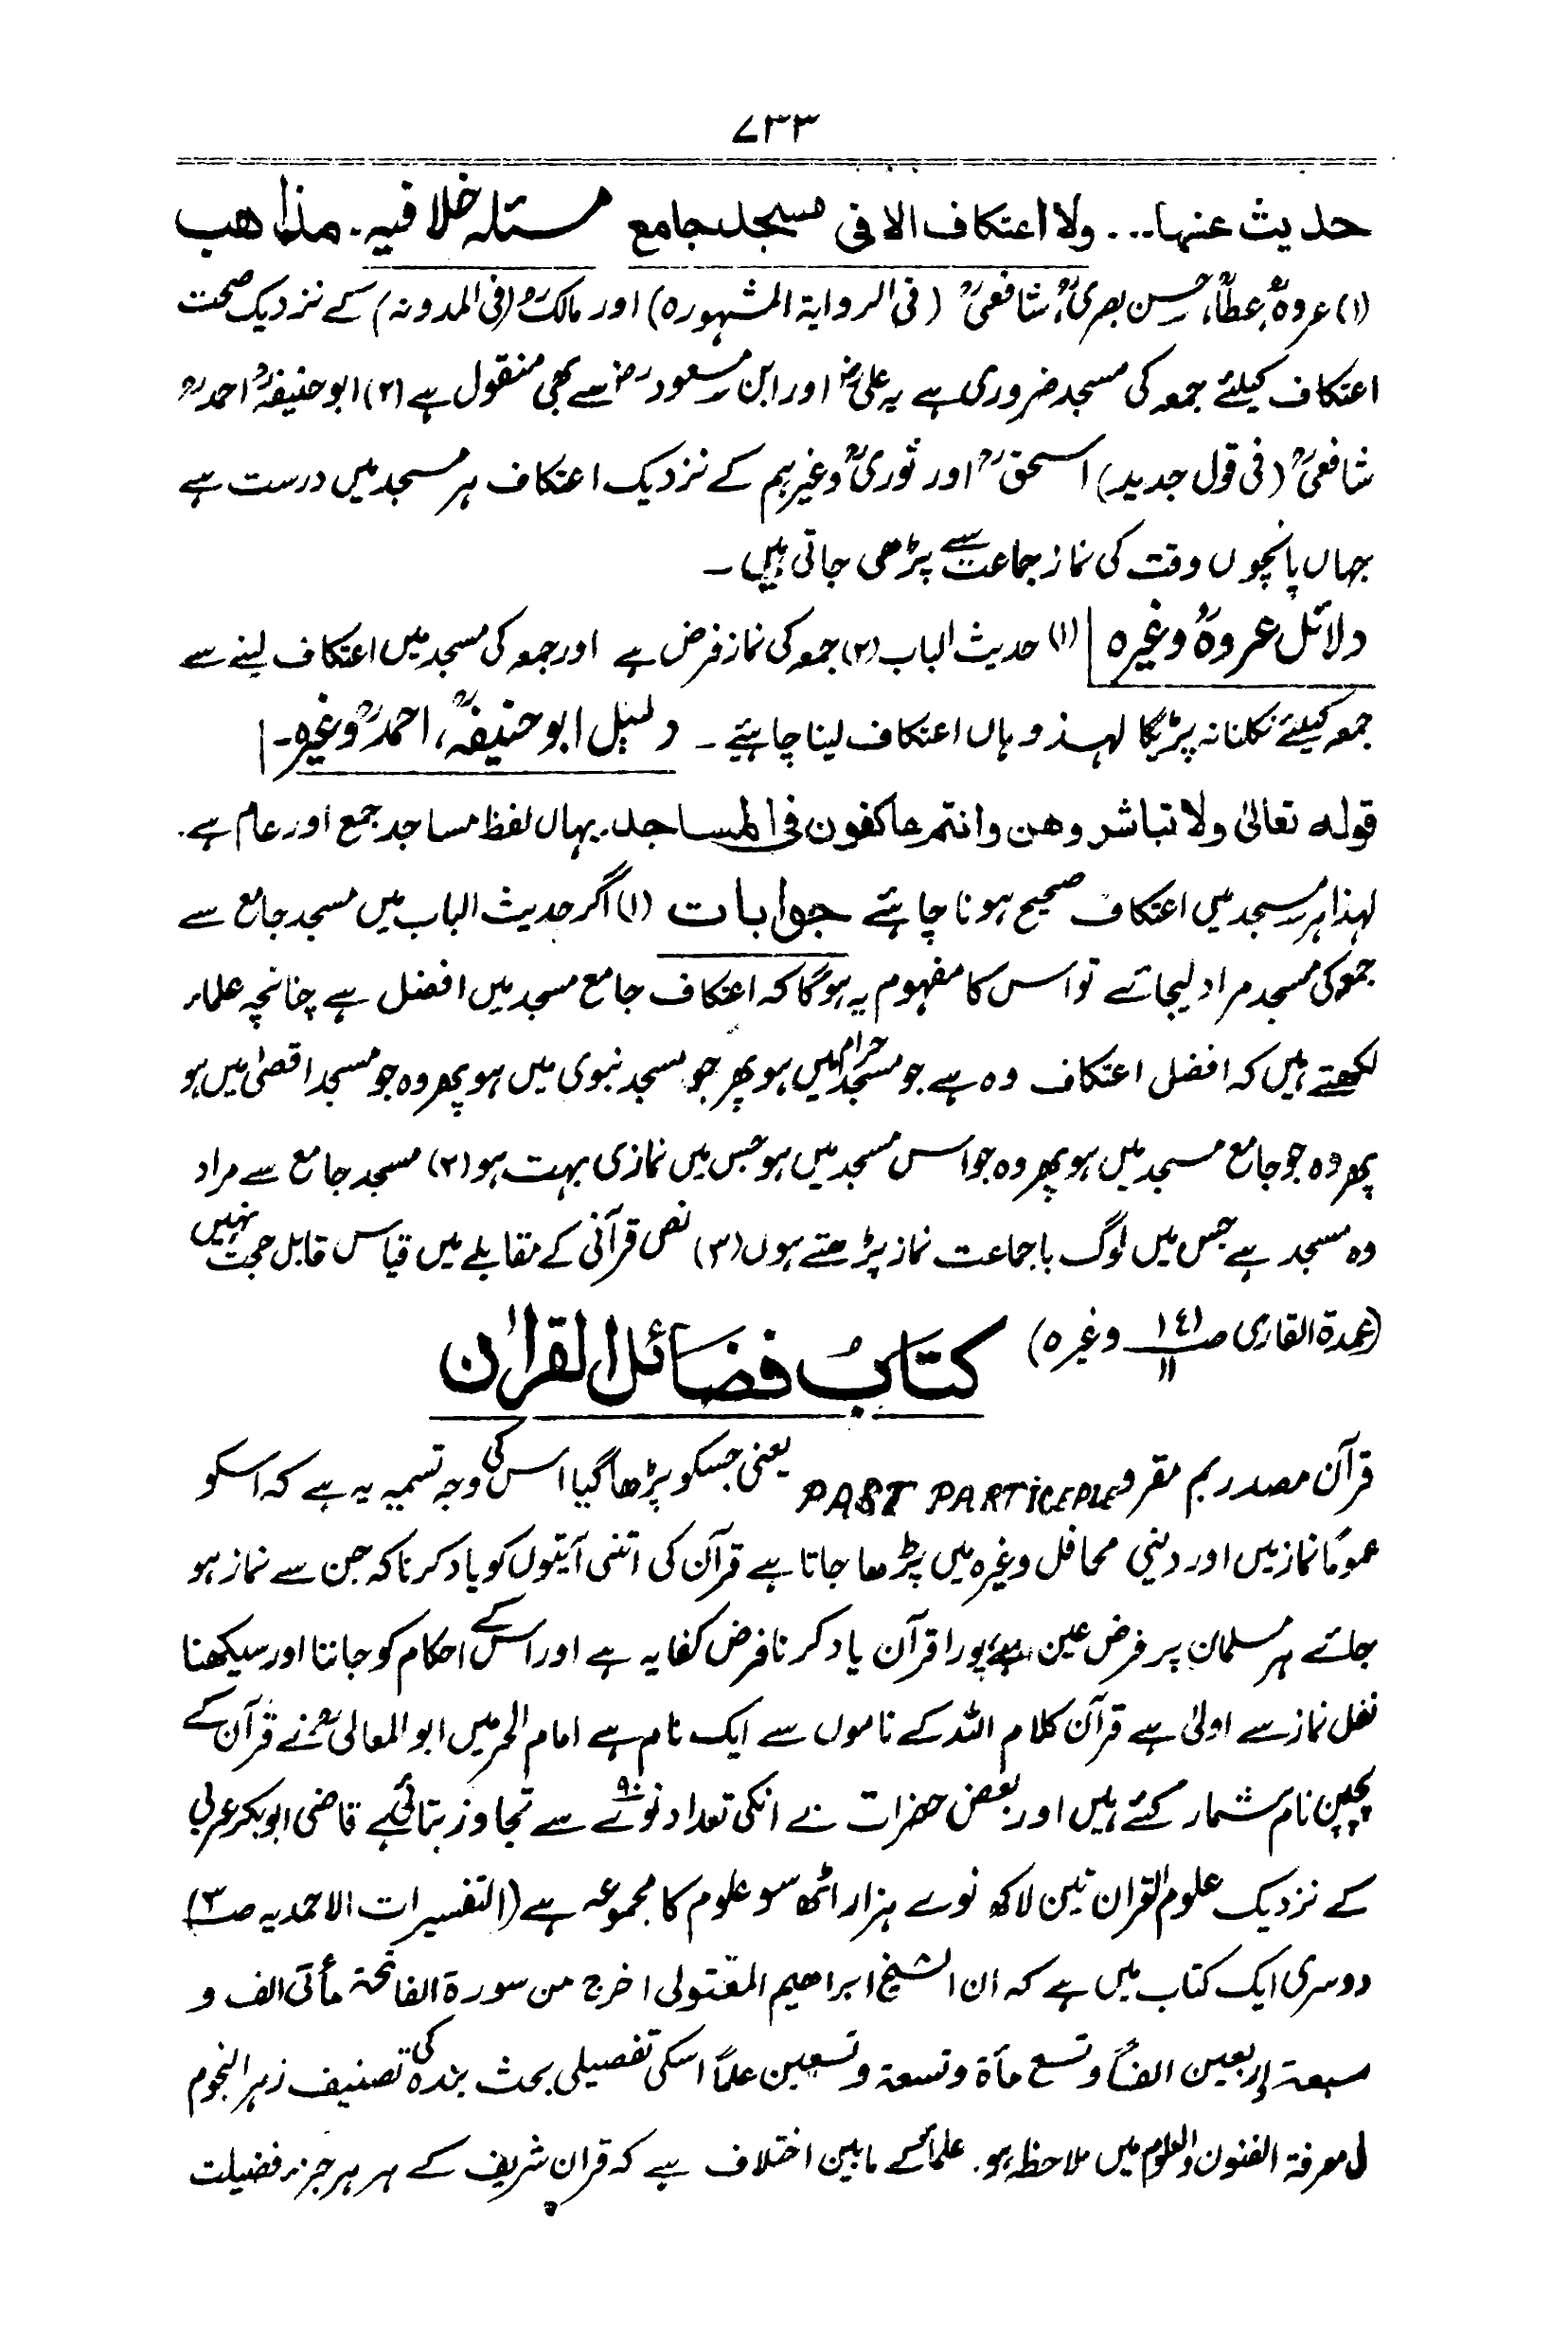 ۷۳۳
حدیث عنہا... ولا اعتکاف الا فی مسجد جامع مسئلہ خلافیہ. مذاهب
(۱) عروہؒ، عطاؒ، حسن بصریؒ، شافعیؒ (فی الروایة المشہورہ) اور مالکؒ (فی المدونہ) کے نزدیک صحت
اعتکاف کیلئے جمعہ کی مسجد ضروری ہے یہ علیؓ اور ابن مسعودؓ سے بھی منقول ہے (۲) ابوحنیفہؒ احمدؒ
شافعیؒ (فی قول جدید) اسحقؒ اور ثوریؒ وغیرہم کے نزدیک اعتکاف ہر مسجد میں درست ہے
جہاں پانچوں وقت کی نماز جماعت سے پڑھی جاتی ہیں ۔
دلائل عروہؒ وغیرہ (۱) حدیث الباب (۲) جمعہ کی نماز فرض ہے اور جمعہ کی مسجد میں اعتکاف لینے سے
جمعہ کیلئے نکلنا نہ پڑیگا لہذ وہاں اعتکاف لینا چاہئیے ۔ دلیل ابوحنیفہؒ، احمدؒ وغیرہ ۔
قوله تعالیٰ ولا تباشروهن وانتم عاکفون فی المساجد. یہاں لفظ مساجد جمع اور عام ہے.
لہذا ہر مسجد میں اعتکاف صحیح ہونا چاہئے جوابات (۱) اگر حدیث الباب میں مسجد جامع سے
جمعہ کی مسجد مراد لیجائے تو اس کا مفہوم یہ ہوگا کہ اعتکاف جامع مسجد میں افضل ہے چنانچہ علماء
لکھتے ہیں کہ افضل اعتکاف وہ ہے جو مسجد حرام میں ہو پھر جو مسجد نبوی میں ہو پھر وہ جو مسجد اقصیٰ میں ہو
پھر وہ جو جامع مسجد میں ہو پھر وہ جو اس مسجد میں ہو جس میں نمازی بہت ہو (۲) مسجد جامع سے مراد
وہ مسجد ہے جس میں لوگ باجماعت نماز پڑھتے ہوں (۳) نص قرآنی کے مقابلے میں قیاس قابل حجت نہیں
(عمدة القاری صـ ۱۴۱/۱۱ وغیرہ) کتاب فضائل القرآن
قرآن مصدر بم مقرو PAST PARTICEPLE یعنی جسکو پڑھا گیا اس کی وجہ تسمیہ یہ ہے کہ اسکو
عموماً نماز میں اور دینی محافل وغیرہ میں پڑھا جاتا ہے قرآن کی اتنی آیتوں کو یاد کرنا کہ جن سے نماز ہو
جائے ہر مسلمان پر فرض عین ہے پورا قرآن یاد کرنا فرض کفایہ ہے اور اس کے احکام کو جاننا اور سیکھنا
نفل نماز سے اولیٰ ہے قرآن کلام اللہ کے ناموں سے ایک نام ہے امام الحرمیں ابو المعالیؒ نے قرآن کے
پچپن نام شمار کئے ہیں اور بعض حضرات نے انکی تعداد نوّے ۹۰ سے تجاوز بتائی ہے قاضی ابوبکر عربی
کے نزدیک علوم القران تین لاکھ نوے ہزار اٹھ سو علوم کا مجموعہ ہے (التفسیرات الاحمدیہ صـ۳)
دوسری ایک کتاب میں ہے کہ ان الشیخ ابراهیم المقتولی اخرج من سورة الفاتحة مأتی الف و
سبعة اربعین الفاً وتسع مأة وتسعة وتسعین علماً اسکی تفصیلی بحث بندہ کی تصنیف زہر النجوم
ل معرفة الفنون والعلوم میں ملاحظہ ہو. علمائے کے مابین اختلاف ہے کہ قران شریف کے ہر ہر جزء فضیلت